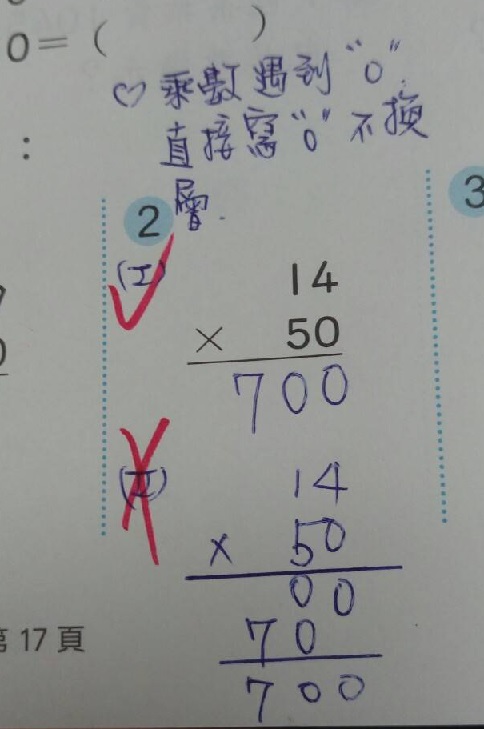 0=( )
♡ 乘數遇到“0”.
直接寫“0”不換
層.
:
2
3
(I)
14
× 50
700
(II)
14
× 50
00
70
700
第 17 頁